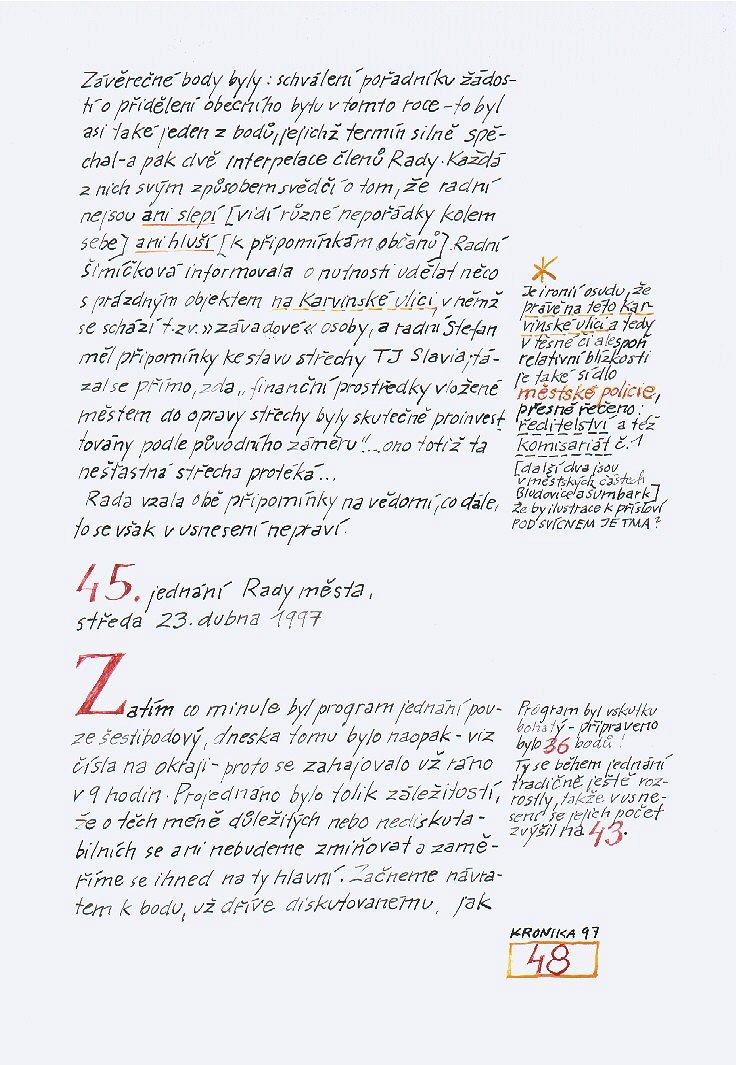 Závěrečné body byly: schválení pořadníku žádos-
tí o přidělení obecního bytu v tomto roce – to byl
asi také jeden z bodů, jejichž termín silně spě-
chal – a pak dvě interpelace členů Rady. Každá
z nich svým způsobem svědčí o tom, že radní
nejsou ani slepí [vidí různé nepořádky kolem
sebe] ani hluší [k připomínkám občanů]. Radní
Šimíčková informovala o nutnosti udělat něco
s prázdným objektem na Karvinské ulici, v němž
se schází t.zv. »závadové« osoby, a radní Štefan
měl připomínky ke stavu střechy TJ Slavia; tá-
zal se přímo, zda „finanční prostředky vložené
městem do opravy střechy byly skutečně proinvest
továny podle původního záměru“... ono totiž ta
nešťastná střecha protéká...
Rada vzala obě připomínky na vědomí, co dále,
to se však v usnesení nepraví.
*
Je ironií osudu, že
právě na této Kar-
vinské ulici a tedy
v těsné či alespoň
relativní blízkosti
je také sídlo
městské policie,
přesně řečeno:
ředitelství a též
Komisariát č. 1
[další dva jsou
v městských částech
Bludovice a Šumbark]
Že by ilustrace k přísloví
POD SVÍCNEM JE TMA?
45. jednání Rady města,
středa 23. dubna 1997
Zatím co minule byl program jednání pou-
ze šestibodový, dneska tomu bylo naopak – viz
čísla na okraji – proto se zahajovalo už ráno
v 9 hodin. Projednáno bylo tolik záležitostí,
že o těch méně důležitých nebo nediskuta-
bilních se ani nebudeme zmiňovat a zamě-
říme se ihned na ty hlavní. Začneme návra-
tem k bodu, už dříve diskutovanému, jak
Program byl vskutku
bohatý – připraveno
bylo 36 bodů!
Ty se během jednání
tradičně ještě roz-
rostly, takže v usne-
sení se jejich počet
zvýšil na 43.
KRONIKA 97
48